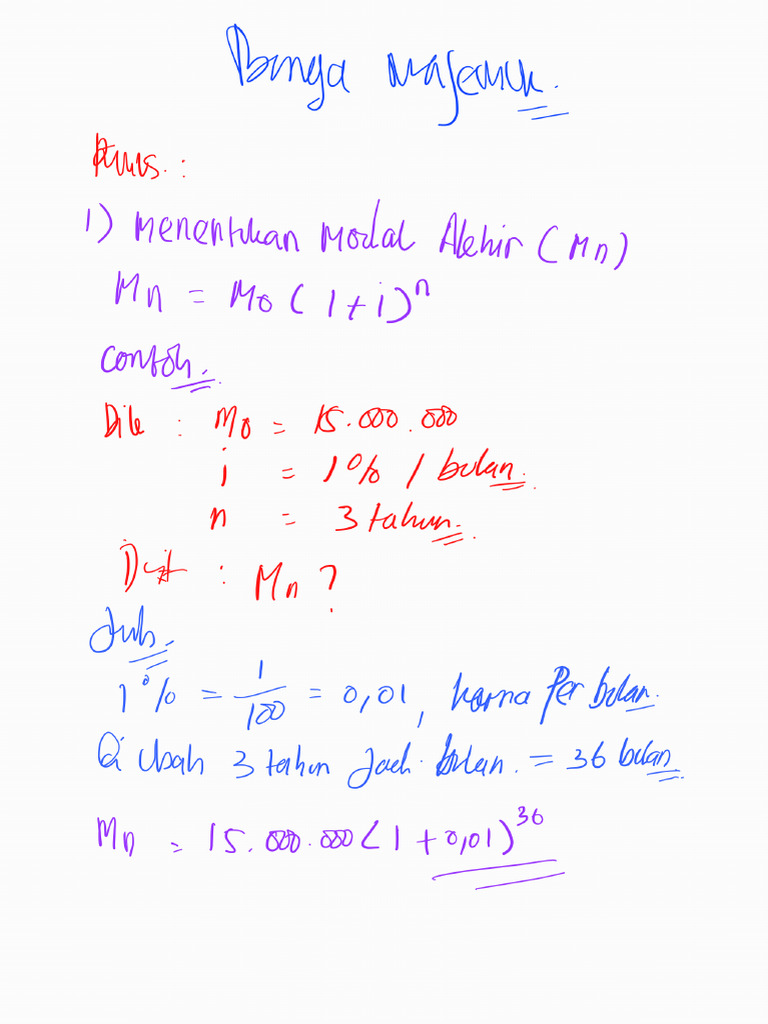 Bunga majemuk.
Rumus :
1) Menentukan Modal Akhir (Mn)
Mn = Mo ( 1 + i )ⁿ
Contoh.
Dik : Mo = 15.000.000
i = 1% / bulan.
n = 3 tahun.
Dit : Mn ?
Jwb.
1% = 1/100 = 0,01, karna Per bulan.
Di Ubah 3 tahun Jadi bulan. = 36 bulan
Mn = 15.000.000 ( 1 + 0,01 )³⁶